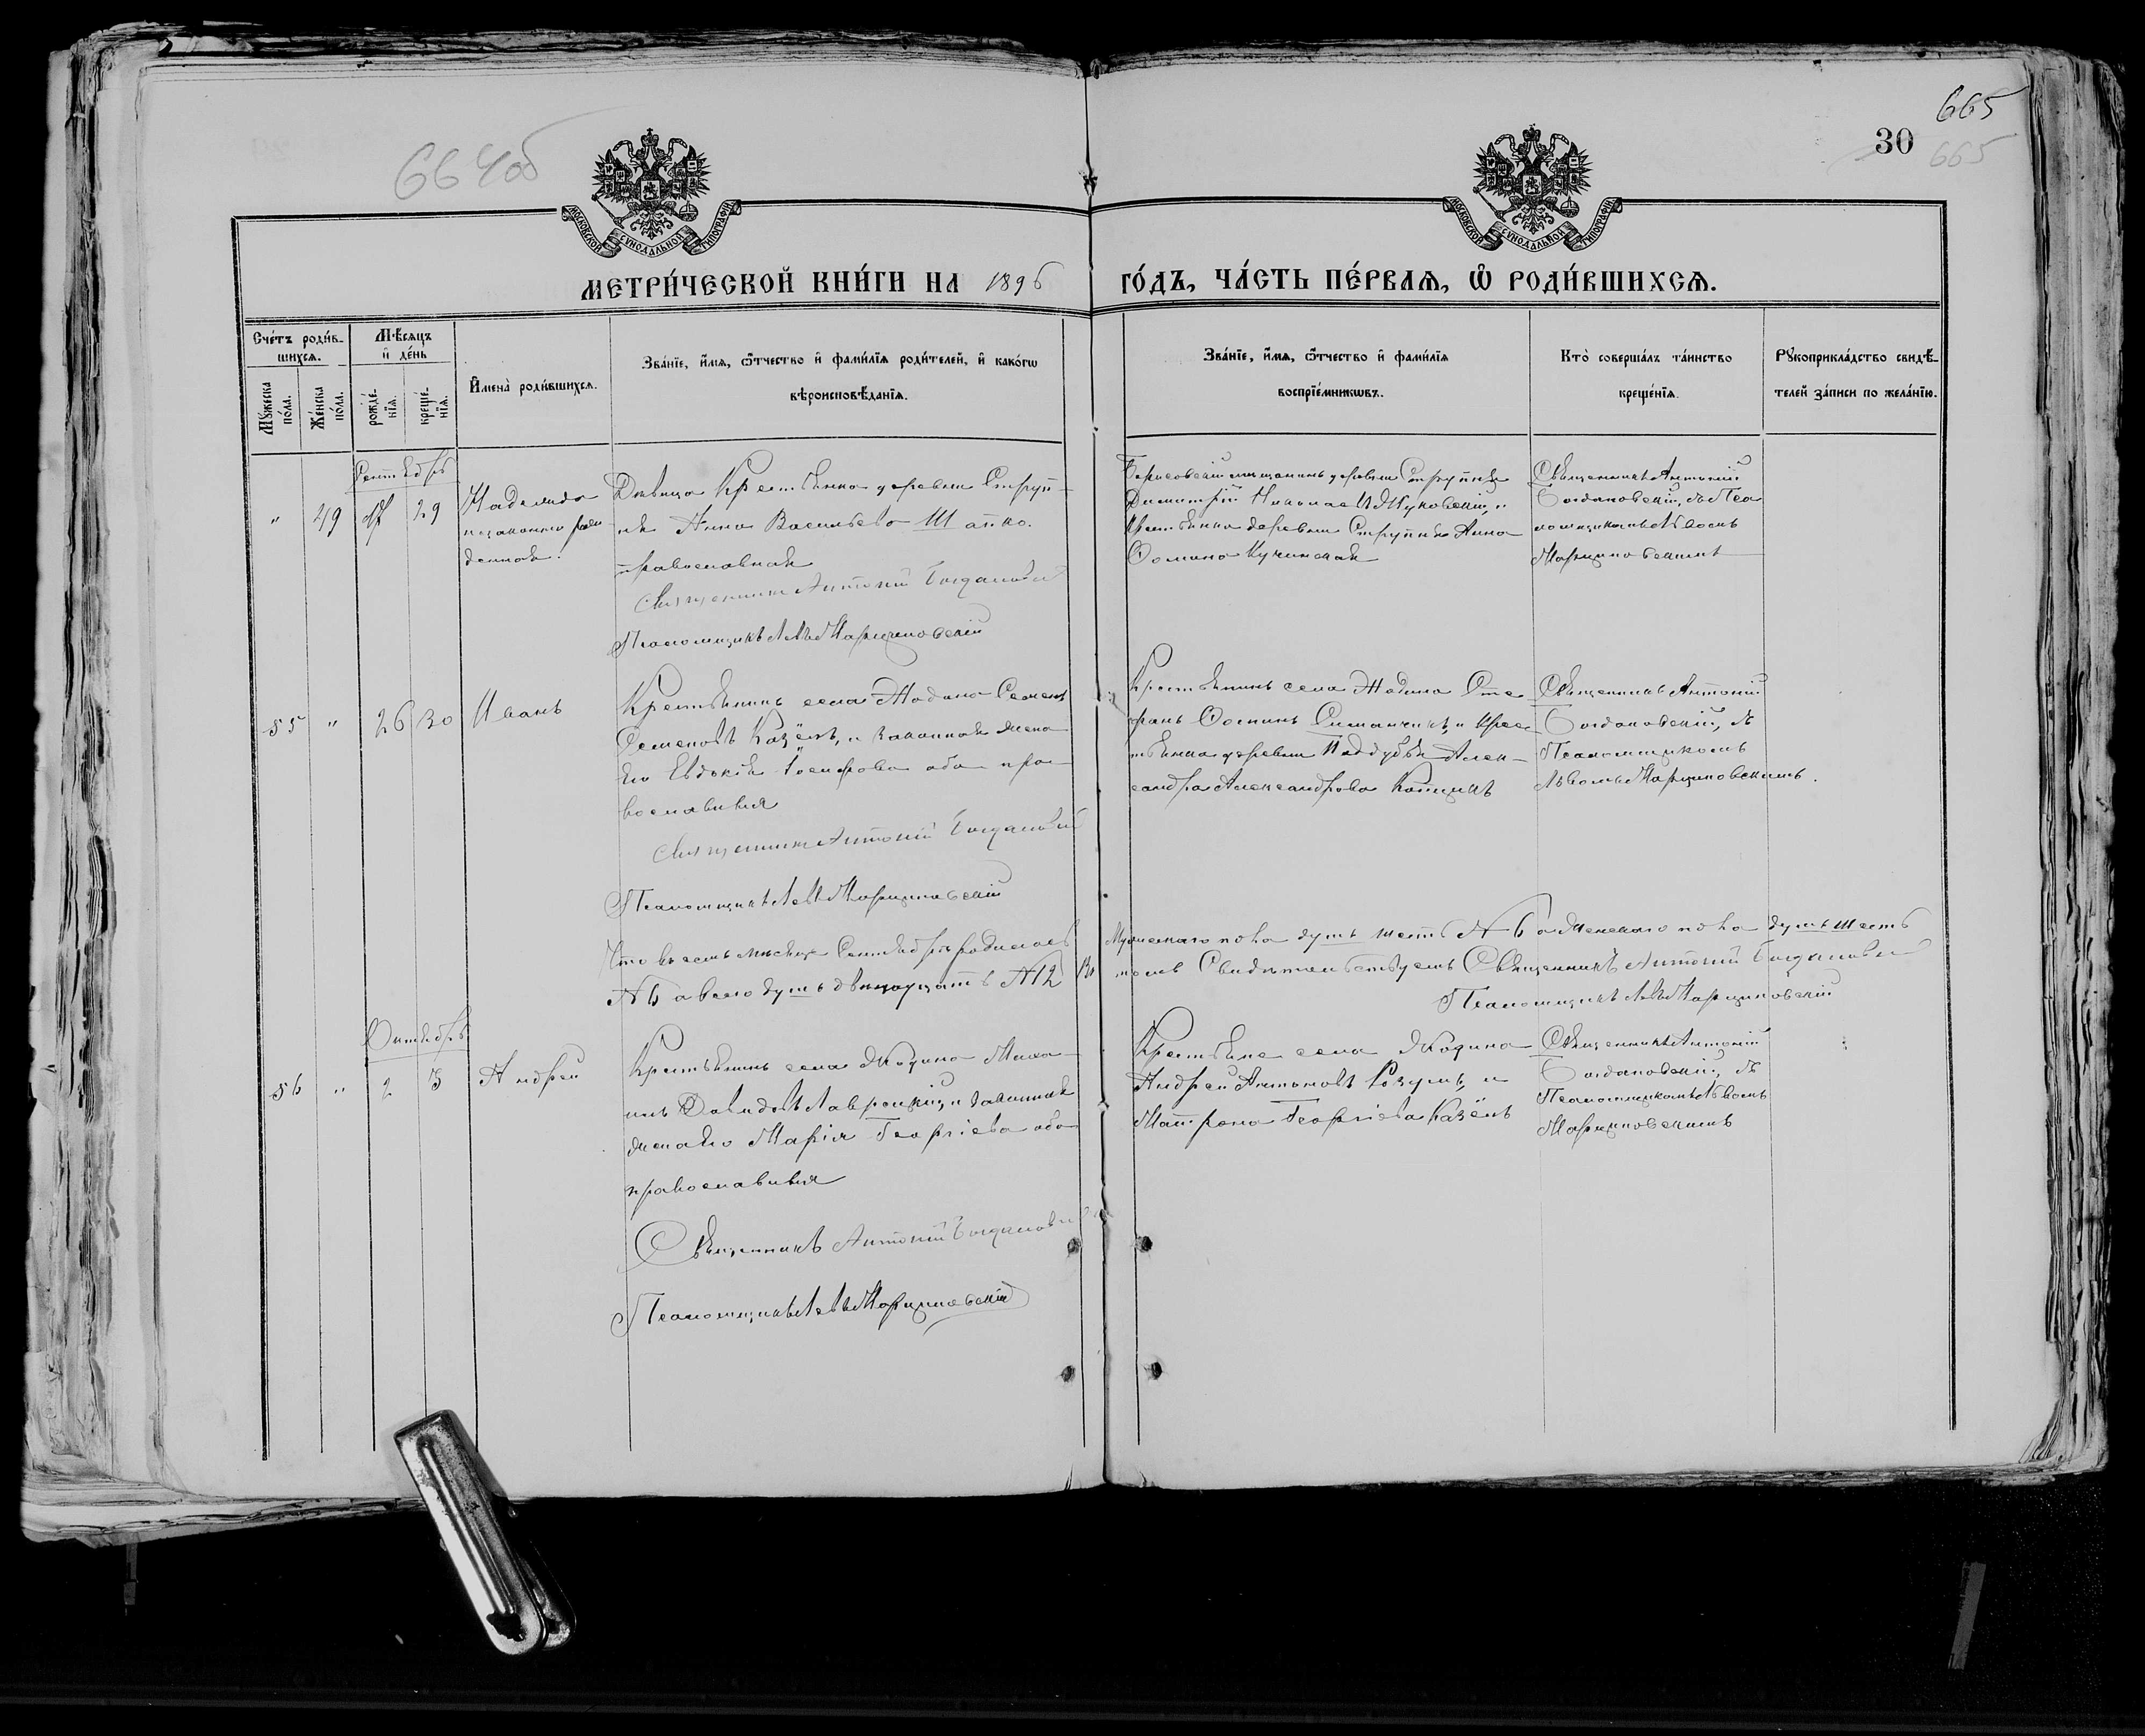 664об
665
30
665
МОСКОВСКОЙ СѴНОДАЛЬНОЙ ТИПОГРАФІИ
МОСКОВСКОЙ СѴНОДАЛЬНОЙ ТИПОГРАФІИ
МЕТРИ́ЧЕСКОЙ КНИ́ГИ НА 1896 ГО́ДЪ, ЧА́СТЬ ПЕ́РВАѦ, Ѡ҆ РОДИ́ВШИХСѦ.
Сче́тъ роди́в-
шихсѧ.
Мꙋ́жеска
по́ла.
Же́нска
по́ла.
Мѣ́сѧцъ
и҆ де́нь
рожде́-
нїѧ.
креще́-
нїѧ.
И҆мена̀ роди́вшихсѧ.
Зва́нїе, и҆́мѧ, ѻ҆́тчество и҆ фами́лїѧ роди́телей, и҆ како́гѡ
вѣроисповѣ́данїѧ.
Зва́нїе, и҆́мѧ, ѻ҆́тчество и҆ фами́лїѧ
воспрїе́мникѡвъ.
Кто̀ соверша́лъ та́инство
креще́нїѧ.
Рꙋкоприкла́дство свидѣ́-
телей за́писи по жела́нїю.
Сентябрь
"
49
29
Надежда
незаконно рож
денная.
Дѣвица Крестьянка деревни Струп-
ня Анна Васильева Шапко.
православная
Священникъ Антоній Богдановскій
Псаломщикъ Левъ Марциновскій
Борисовскій мѣщанинъ деревни Струпня
Димитрій Николаевъ Жуковскій, и
Крестьянка деревни Струпня Анна
Фомина Кучинская
Священникъ Антоній
Богдановскій, съ Пса
ломщикомъ Львомъ
Марциновскимъ
55
"
26
30
Иванъ
Крестьянинъ села Жодина Семенъ
Семеновъ Козёлъ, и законная жена
его Евдокія Іосифова оба пра-
вославныя
Священникъ Антоній Богдановскій
Псаломщикъ Левъ Марциновскій
Крестьянинъ села Жодина Сте
фанъ Фоминъ Симанчикъ, и крес
тьянка деревни Поддубья Алек-
сандра Александрова
Священникъ Антоній
Богдановскій, съ
Псаломщикомъ
Львомъ Марциновскимъ.
Что въ семъ мѣсяцѣ Сентябрѣ родилось мужескаго пола душъ шесть № 6 а женскаго пола душъ шесть
№ 6 а всего душъ двенадцать № 12 въ томъ Свидѣтельствуемъ Священникъ Антоній Богдановскій
Псаломщикъ Левъ Марциновскій
Октябрь
56
"
2
3
Андрей
Крестьянинъ села Жодина Миха
илъ Давидовъ Лаврецкій, и законная
жена его Марія Георгіева оба
православныя
Священникъ Антоній Богдановскій
Псаломщикъ Левъ Марциновскій
Крестьяне села Жодина
Андрей Антоновъ Розумъ, и
Матрона Георгіева Козёлъ
Священникъ Антоній
Богдановскій, съ
Псаломщикомъ Львомъ
Марциновскимъ